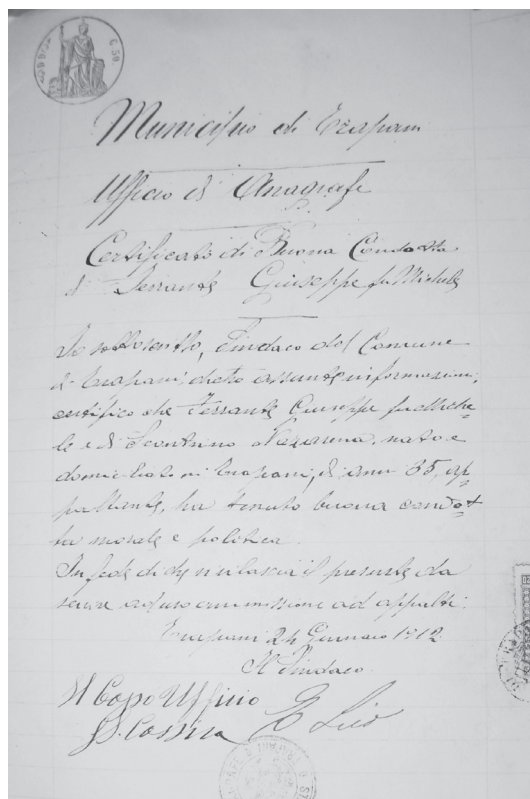 C. 50
Municipio di Trapani
Ufficio di Anagrafe
Certificato di Buona Condotta
di Ferrante Giuseppe fu Michele
Io sottoscritto, Sindaco del Comune
di Trapani, dietro assunte informazioni,
certifico che Ferrante Giuseppe fu Miche-
le e di Scontrino Nazarena, nato e
domiciliato in Trapani, di anni 35, ap-
paltante, ha tenuto buona condot-
ta morale e politica.
In fede di che si rilascia il presente da
servire ad uso ammissione ad appalti.
Trapani 24 Gennaio 1912
Il Sindaco
Il Capo Ufficio